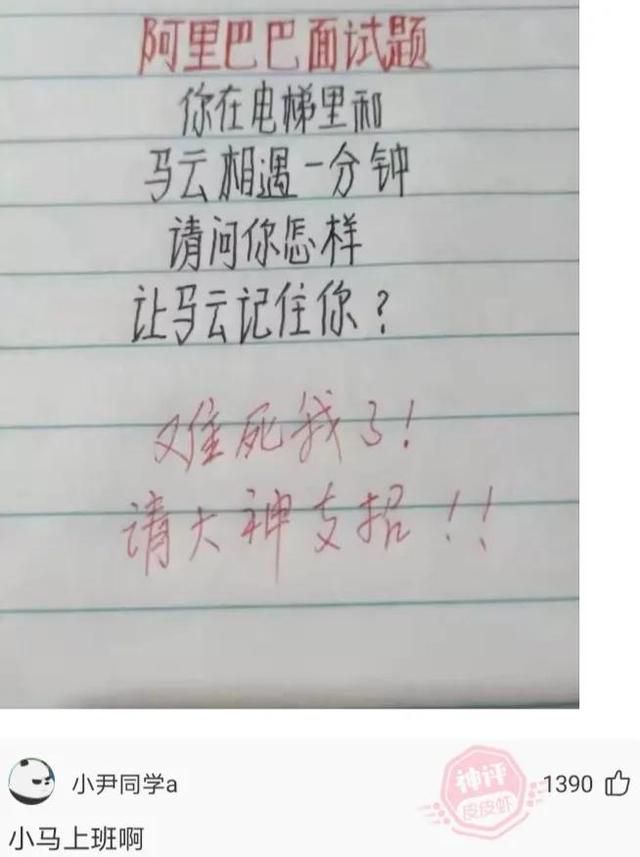 阿里巴巴面试题
你在电梯里和
马云相遇一分钟
请问你怎样
让马云记住你？
难死我了！
请大神支招！！
小尹同学a
神评
皮皮虾
1390
小马上班啊